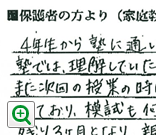 ■保護者の方より（家庭教
4年生から塾に通い
塾では、理解していた
また次回の授業の時
ており、模試も
残り3ヶ月となり